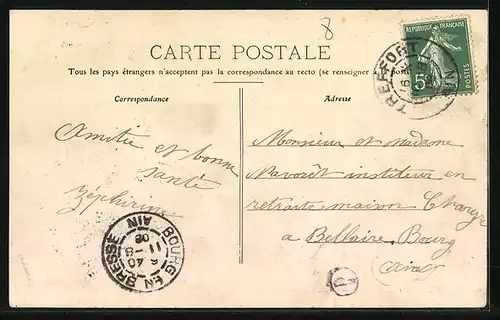 8
CARTE POSTALE
Tous les pays étrangers n'acceptent pas la correspondance au recto (se renseigner poste
Correspondance
Adresse
REPUBLIQUE FRANÇAISE
5c
POSTES
TREFFORT
AIN
Amitié et bonne
santé
Zéphirine
Monsieur et Madame
instituteur en
retraite maison
a Bellaire Bourg
(Ain)
BOURG EN BRESSE AIN
6 40
11 - 8
08